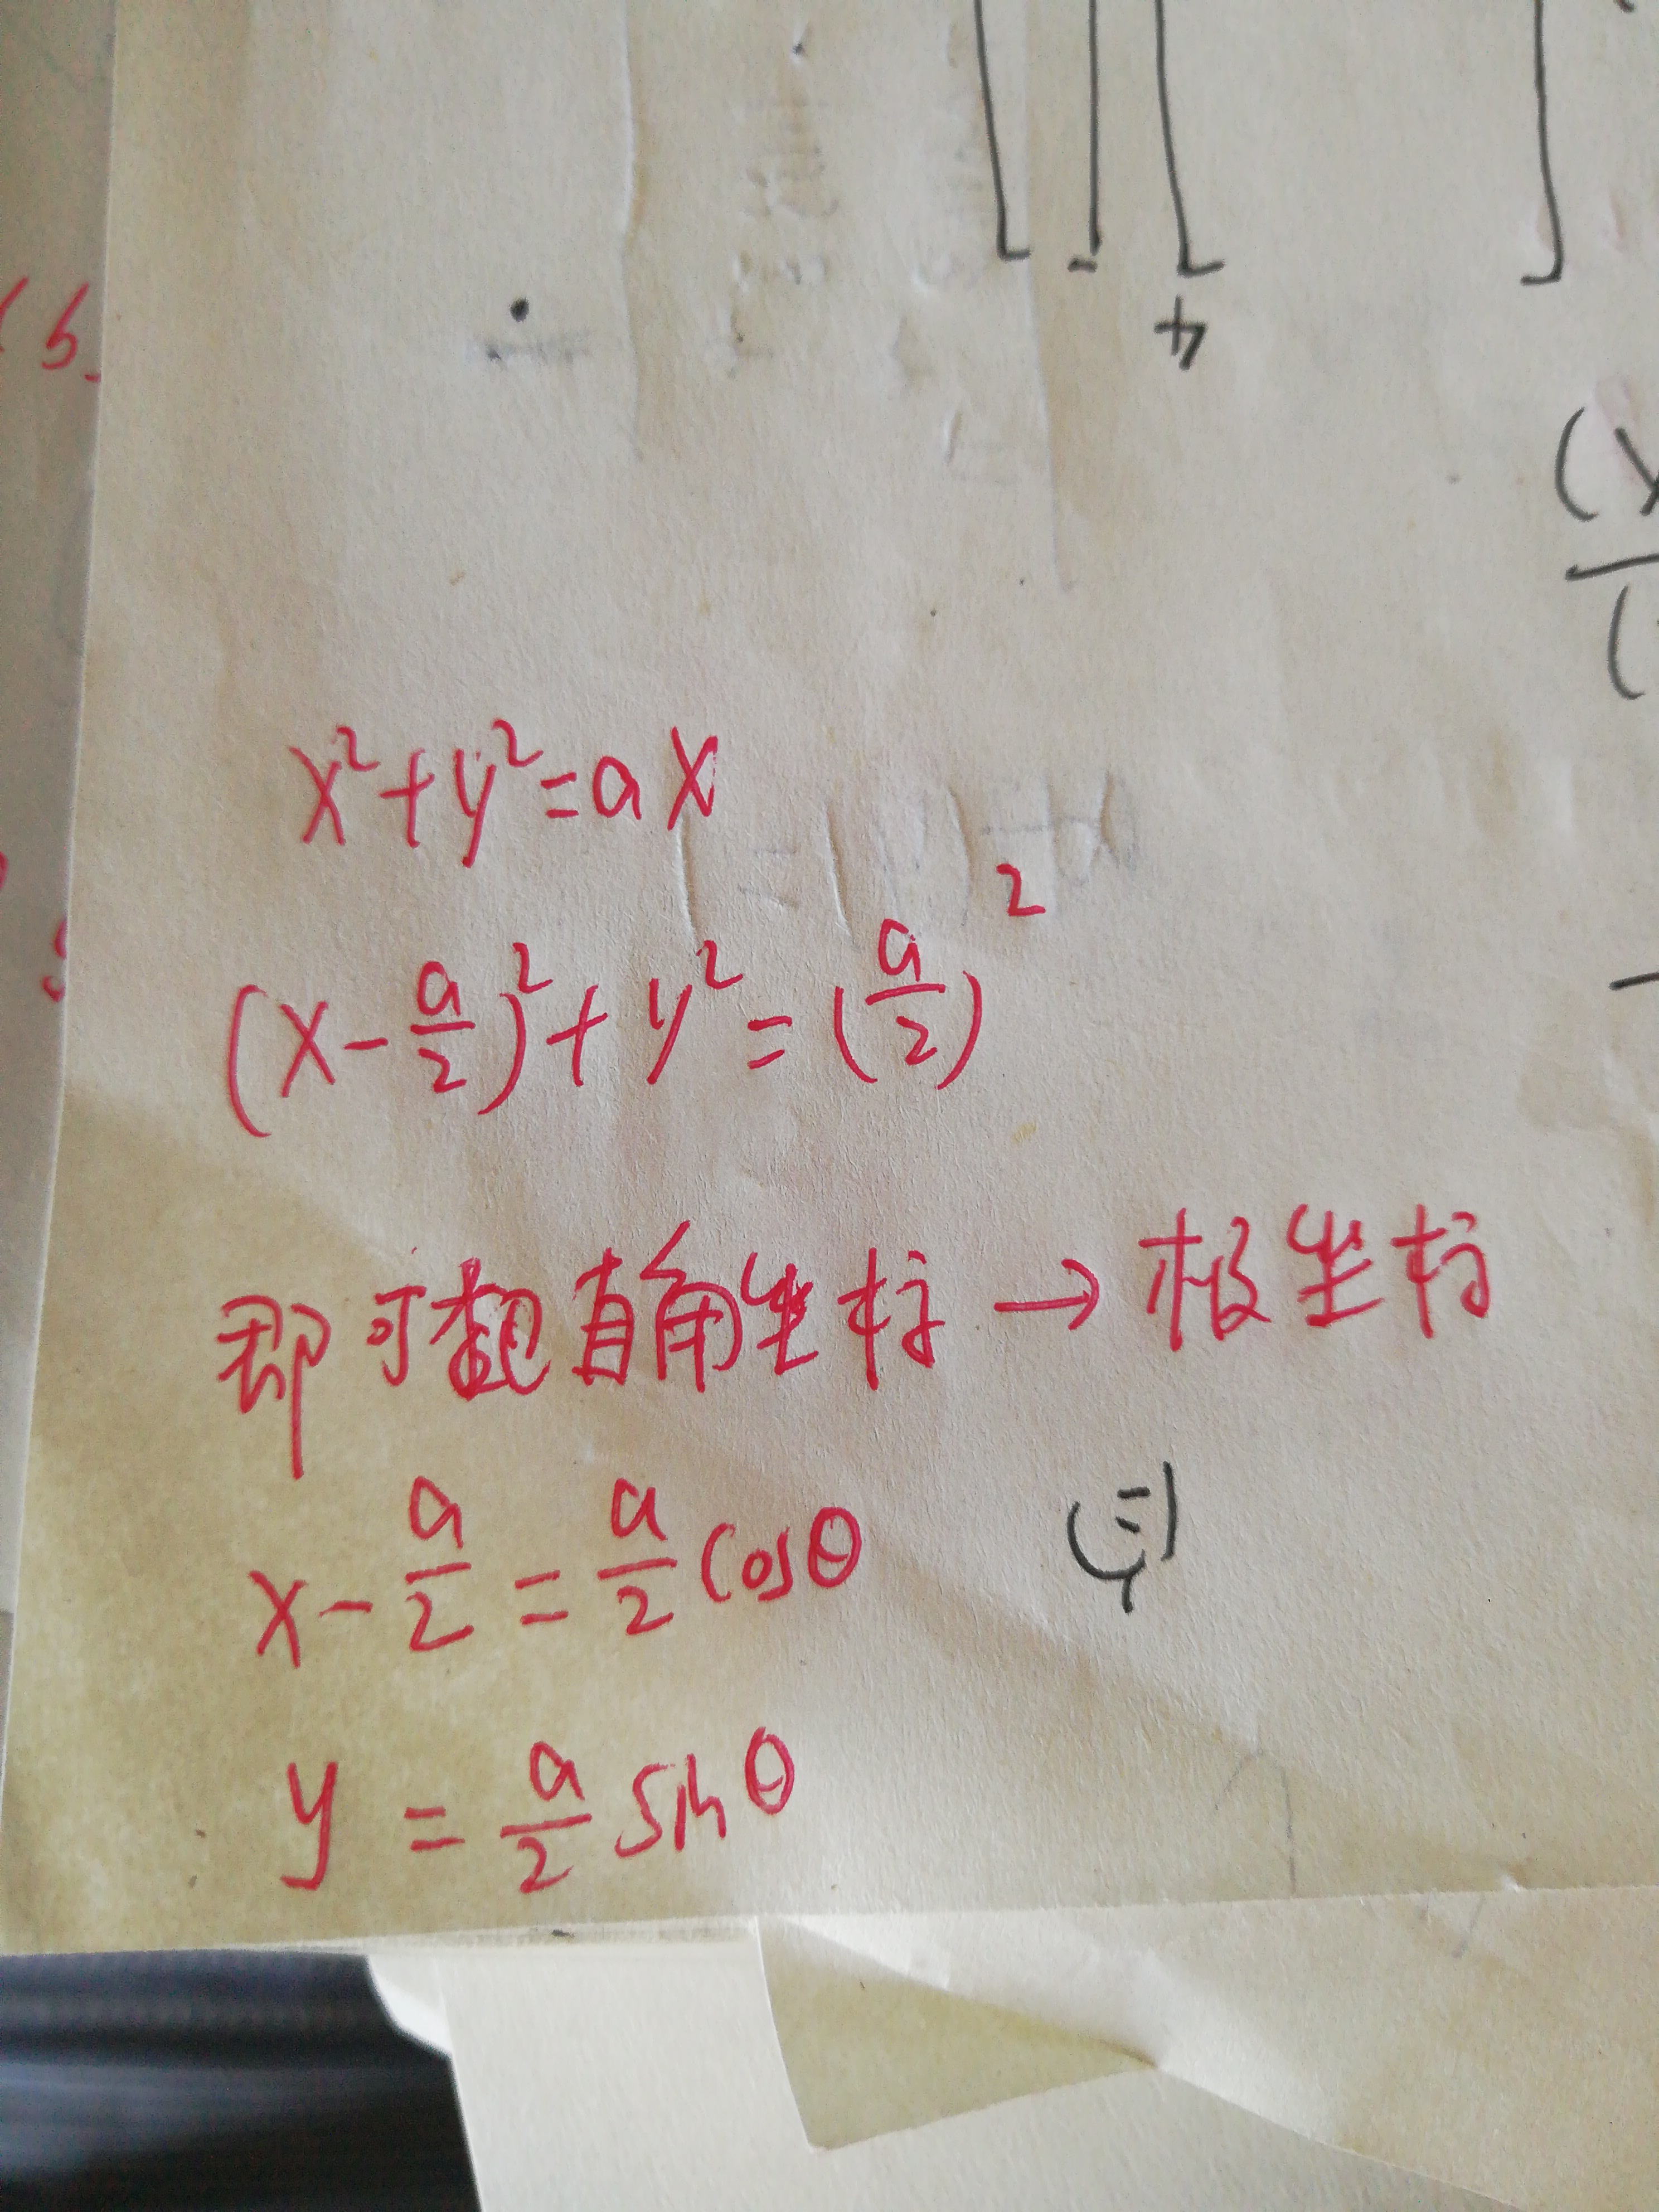 x²+y²=ax
(x-a/2)²+y²=(a/2)²
即可把直角坐标→极坐标
x-a/2=a/2 cosθ
y=a/2 sinθ